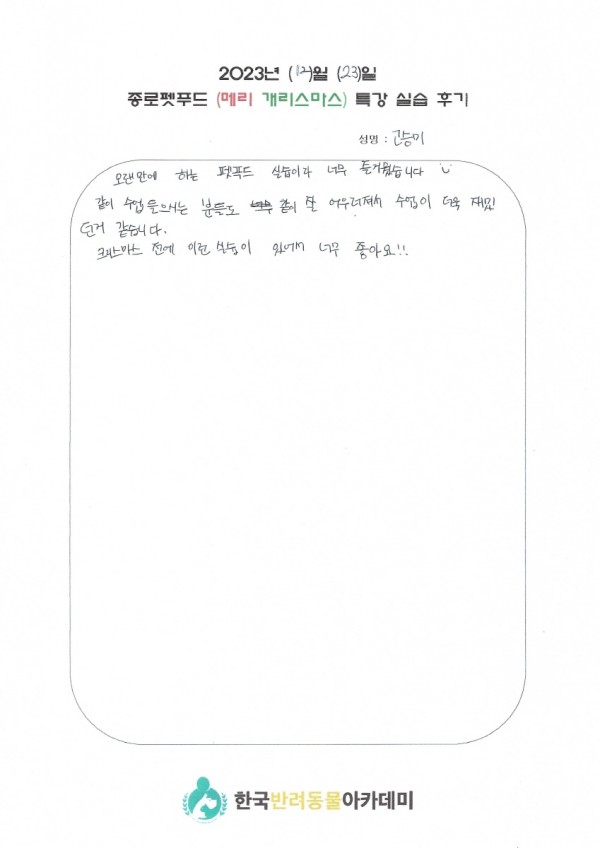 2023년 (12)월 (23)일
종로펫푸드 (메리 개리스마스) 특강 실습 후기
성명 : 고승미
오랜만에 하는 펫푸드 실습이라 너무 즐거웠습니다
같이 수업 들으시는 분들도 너무 같이 잘 어우러져서 수업이 더욱 재밌
던거 같습니다.
크리스마스 전에 이런 실습이 있어서 너무 좋아요!!
한국반려동물아카데미